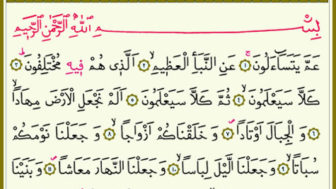 بِسْمِ اللّٰهِ الرَّحْمٰنِ الرَّحِيْمِ
عَمَّ يَتَسَآءَلُوْنَ ۝١ عَنِ النَّبَاِ الْعَظِيْمِ ۝٢ الَّذِىْ هُمْ فِيْهِ مُخْتَلِفُوْنَ ۝٣
كَلَّا سَيَعْلَمُوْنَ ۝٤ ثُمَّ كَلَّا سَيَعْلَمُوْنَ ۝٥ اَلَمْ نَجْعَلِ الْاَرْضَ مِهَادًا ۝٦
وَ الْجِبَالَ اَوْتَادًا ۝٧ وَ خَلَقْنَاكُمْ اَزْوَاجًا ۝٨ وَ جَعَلْنَا نَوْمَكُمْ
سُبَاتًا ۝٩ وَ جَعَلْنَا الَّيْلَ لِبَاسًا ۝١٠ وَ جَعَلْنَا النَّهَارَ مَعَاشًا ۝١١ وَ بَنَيْنَا